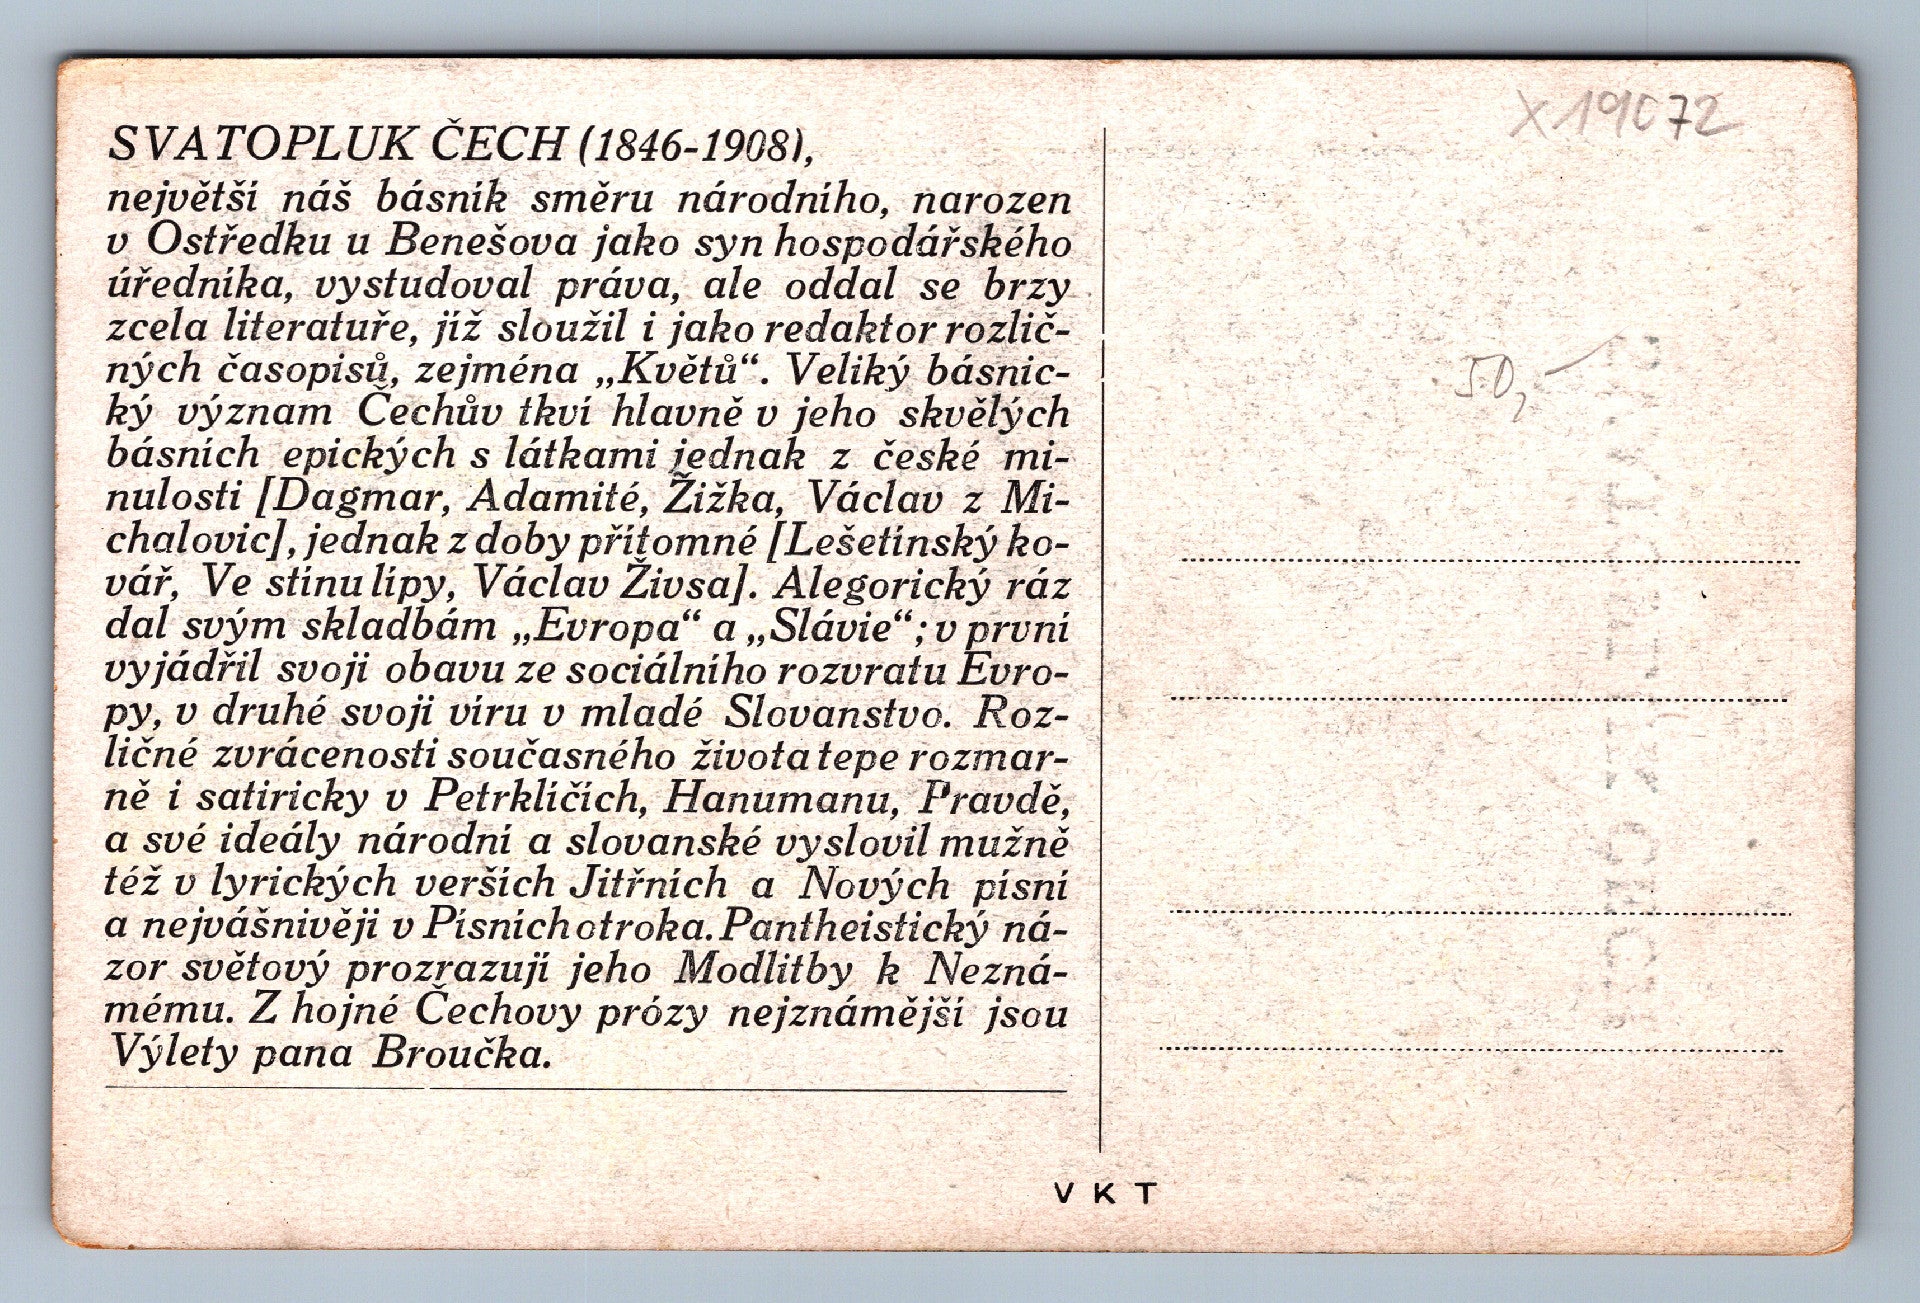 SVATOPLUK ČECH (1846-1908),
největší náš básník směru národního, narozen
v Ostředku u Benešova jako syn hospodářského
úředníka, vystudoval práva, ale oddal se brzy
zcela literatuře, jíž sloužil i jako redaktor rozlič-
ných časopisů, zejména „Květů“. Veliký básnic-
ký význam Čechův tkví hlavně v jeho skvělých
básních epických s látkami jednak z české mi-
nulosti [Dagmar, Adamité, Žižka, Václav z Mi-
chalovic], jednak z doby přítomné [Lešetínský ko-
vář, Ve stínu lípy, Václav Živsa]. Alegorický ráz
dal svým skladbám „Evropa“ a „Slávie“; v první
vyjádřil svoji obavu ze sociálního rozvratu Evro-
py, v druhé svoji víru v mladé Slovanstvo. Roz-
ličné zvrácenosti současného života tepe rozmar-
ně i satiricky v Petrklíčích, Hanumanu, Pravdě,
a své ideály národní a slovanské vyslovil mužně
též v lyrických verších Jitřních a Nových písní
a nejvášnivěji v Písních otroka. Pantheistický ná-
zor světový prozrazují jeho Modlitby k Nezná-
mému. Z hojné Čechovy prózy nejznámější jsou
Výlety pana Broučka.
X 19072
50,-
V K T